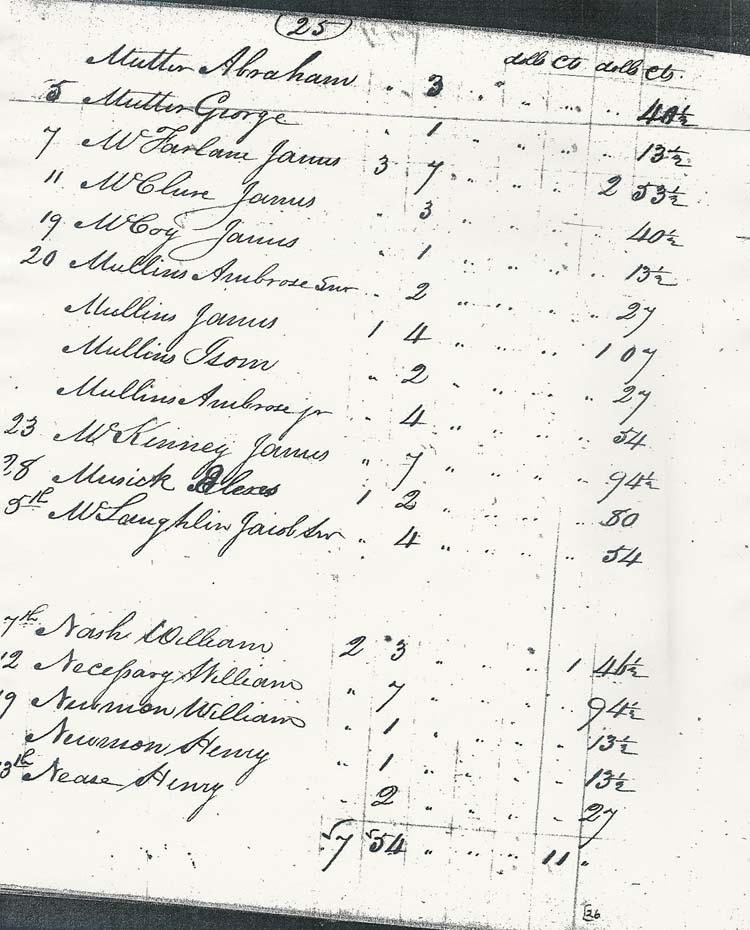 25
dolls Cts dolls Cts.
Mutter Abraham " 3 " " " " 40½
5 Mutter George " 1 " " " " 13½
7 McFarlane James 3 7 " " " 2 53½
11 McClure James " 3 " " " " 40½
19 McCoy James " 1 " " " " 13½
20 Mullins Ambrose Snr " 2 " " " " 27
Mullins James 1 4 " " " 1 07
Mullins Isom " 2 " " " " 27
Mullins Ambrose jr " 4 " " " " 54
23 McKinney James " 7 " " " " 94½
28 Musick Alexes 1 2 " " " " 80
5th McLaughlin Jacob Snr " 4 " " " " 54
7th Nash William 2 3 " " " 1
12 Necessary William " 7 " " " " 94½
19 Newmon William " 1 " " " " 13½
Newmon Henry " 1 " " " " 13½
3th Nease Henry " 2 " " " " 27
57 54 " " " 11 "
26